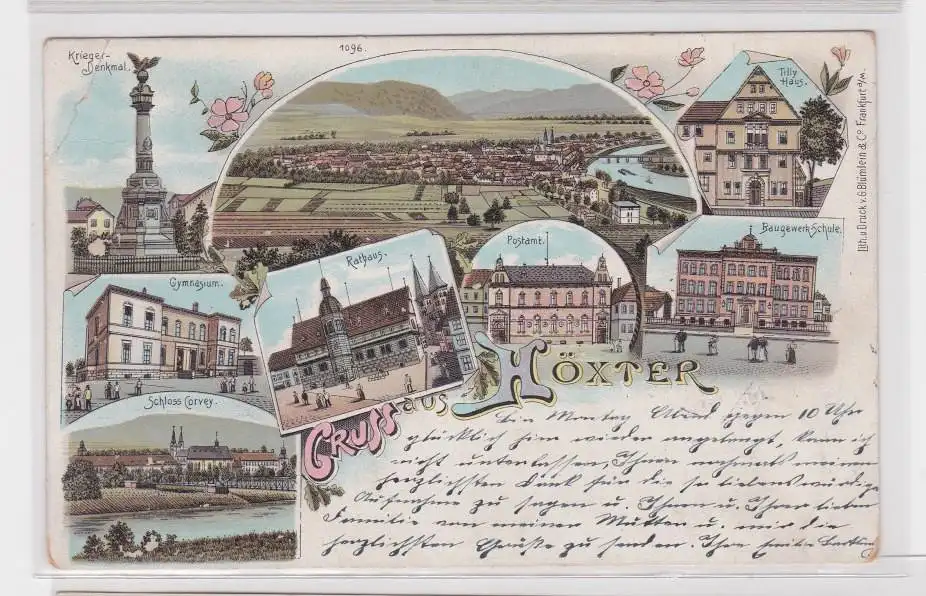 Krieger-
Denkmal.
1096.
Tilly
Haus.
Lith. u. Druck v. G. Blümlein & Co. Frankfurt a/M.
Baugewerk-Schule.
Postamt.
Rathaus.
Gymnasium.
Schloss Corvey.
Gruss aus Höxter
Montag Abend gegen 10 Uhr
glücklich hier wieder angelangt, kann ich
nicht unterlassen, Ihnen nochmals meinen
herzlichsten Dank für die so liebenswürdige
Aufnahme zu sagen u. Ihnen u. Ihrer lieben
Familie von meiner Mutter u. mir die
herzlichsten Grüße zu senden. Ihre